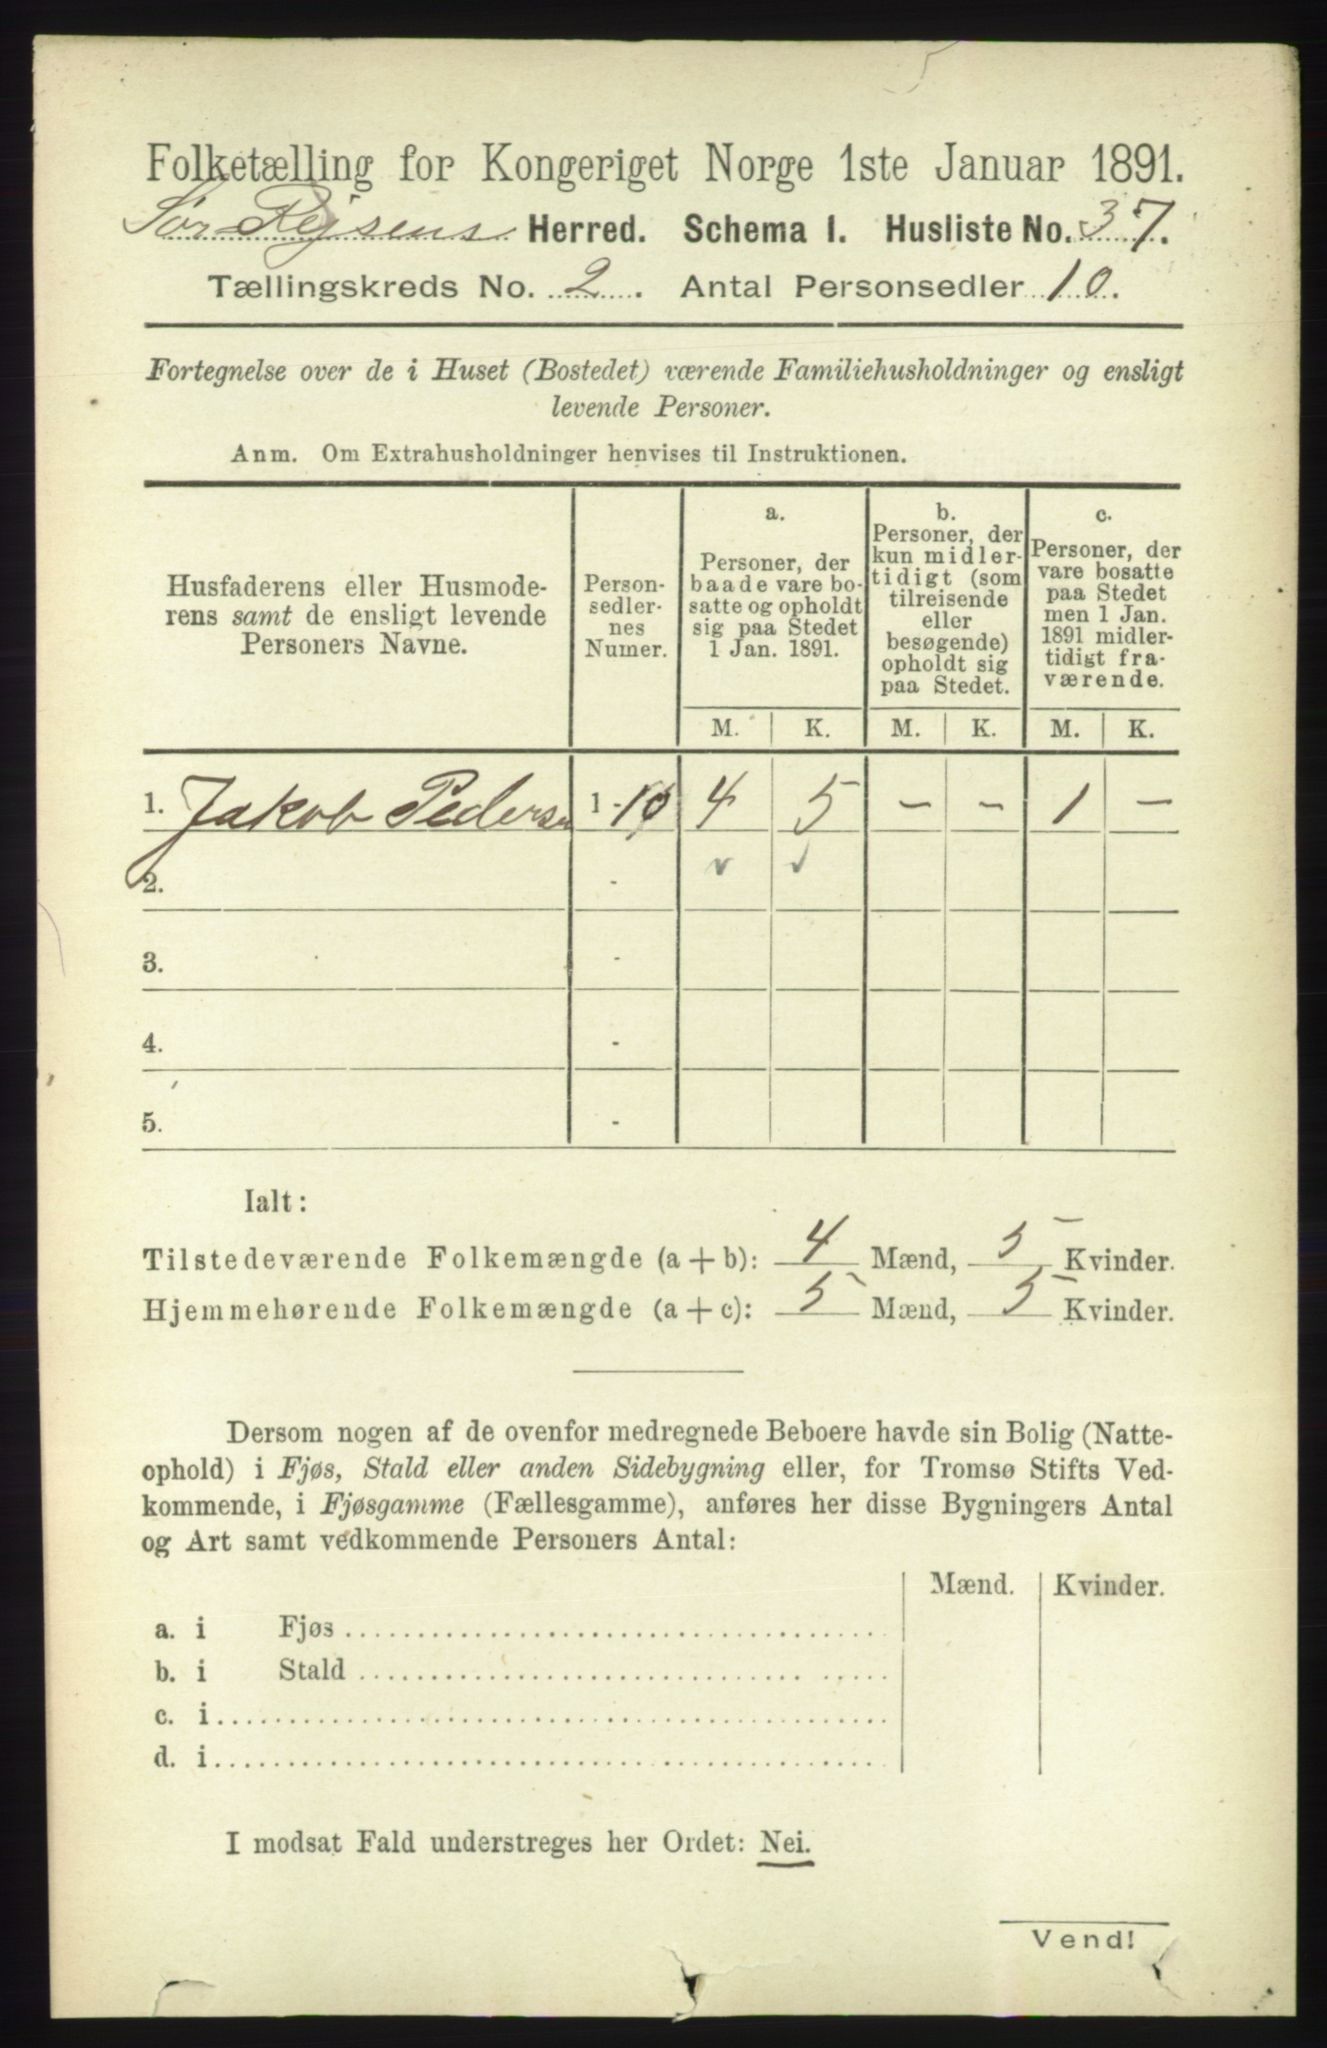 Folketælling for Kongeriget Norge 1ste Januar 1891.
Sør Rejsens Herred. Schema I. Husliste No. 37.
Tællingskreds No. 2. Antal Personsedler 10.
Fortegnelse over de i Huset (Bostedet) værende Familiehusholdninger og ensligt
levende Personer.
Anm. Om Extrahusholdninger henvises til Instruktionen.
Husfaderens eller Husmode-
rens samt de ensligt levende
Personers Navne.
Person-
sedler-
nes
Numer.
a.
Personer, der
baade vare bo-
satte og opholdt
sig paa Stedet
1 Jan. 1891.
b.
Personer, der
kun midler-
tidigt (som
tilreisende
eller
besøgende)
opholdt sig
paa Stedet.
c.
Personer, der
vare bosatte
paa Stedet
men 1 Jan.
1891 midler-
tidigt fra-
værende.
M. K. M. K. M. K.
1. Jakob Pedersen 1-10 4 5 - - 1 -
2. -
3. -
4. -
5. -
Ialt:
Tilstedeværende Folkemængde (a + b): 4 Mænd, 5 Kvinder.
Hjemmehørende Folkemængde (a + c): 5 Mænd, 5 Kvinder.
Dersom nogen af de ovenfor medregnede Beboere havde sin Bolig (Natte-
ophold) i Fjøs, Stald eller anden Sidebygning eller, for Tromsø Stifts Ved-
kommende, i Fjøsgamme (Fællesgamme), anføres her disse Bygningers Antal
og Art samt vedkommende Personers Antal:
Mænd. Kvinder.
a. i Fjøs
b. i Stald
c. i
d. i
I modsat Fald understreges her Ordet: Nei.
Vend!